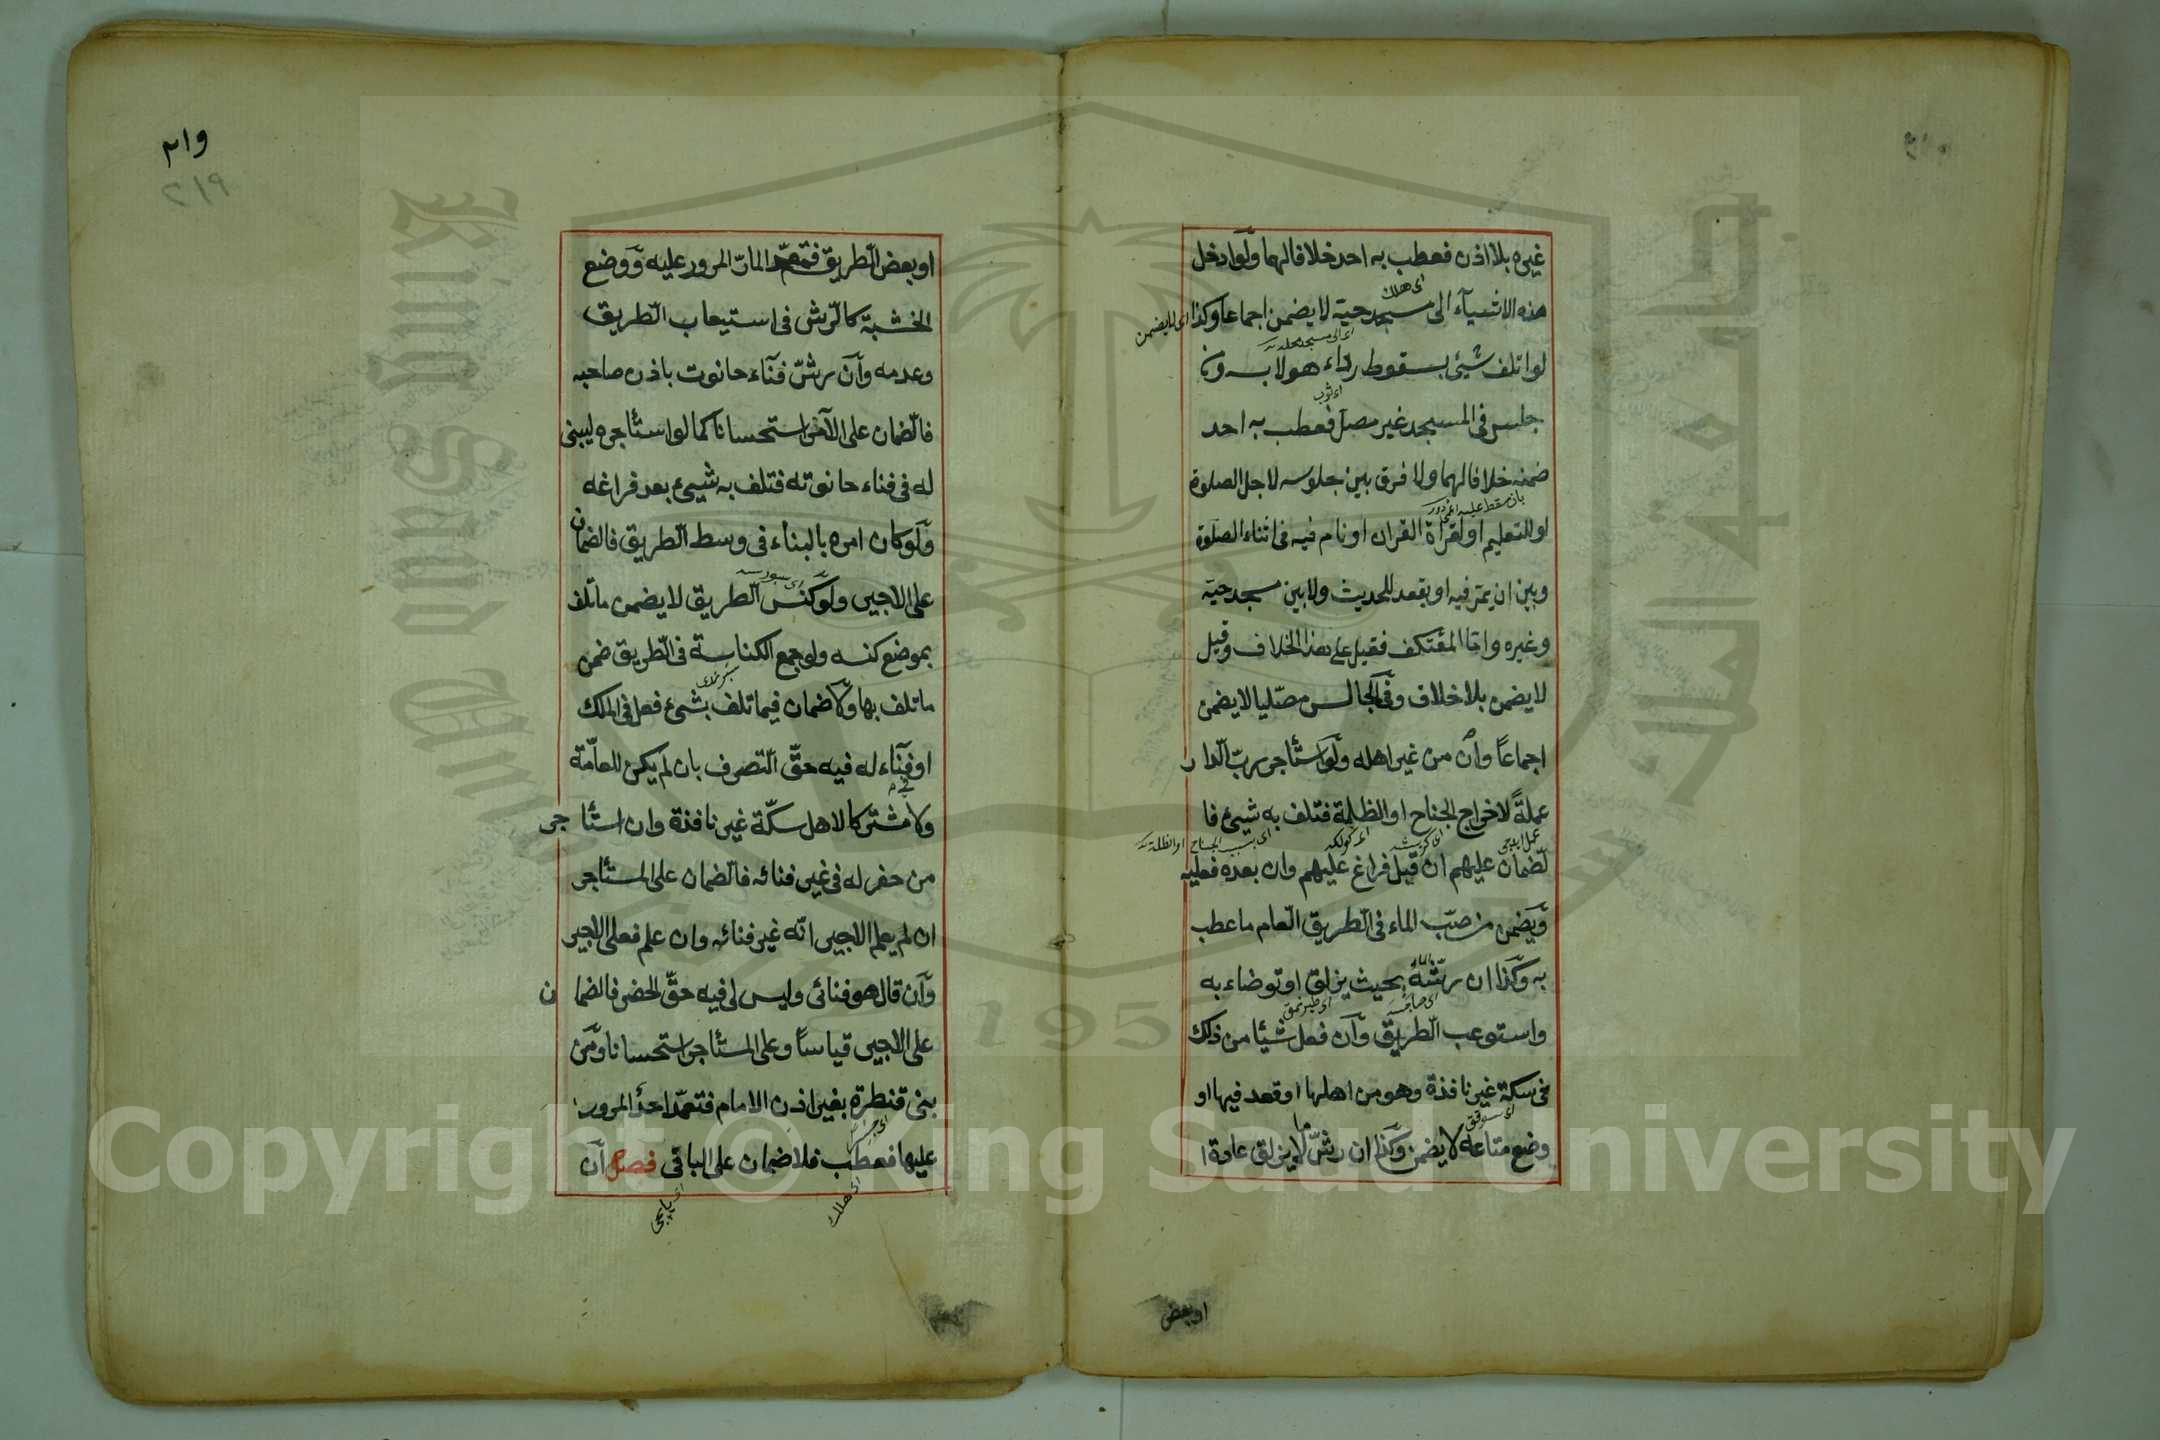 غيره بلا اذن فعطب به احد خلافا لهما ولو ادخل
هذه الاشياء الى مسجد حية لا يضمن اجماعا وكذا
لو اتلف شيئ بسقوط رداء هو لابسه ومن
جلس في المسجد غير مصل فعطب به احد
ضمنه خلافا لهما ولا فرق بين جلوسه لاجل الصلوة
او للتعليم او لقراة القران او نام فيه في اثناء الصلوة
وبين ان يمر فيه او يقعد للحديث ولا بين مسجد حية
وغيره واما المعتكف فقيل على هذا الخلاف وقيل
لا يضمن بلا خلاف وفي الجالس مصليا لا يضمن
اجماعا وان من غير اهله ولو استأجر رب الدار
عملة لاخراج الجناح او الظلة فتلف به شيئ فا
لضمان عليهم ان قبل فراغ عليهم وان بعده فعليه
ويضمن من صب الماء في الطريق العام ما عطب
به وكذا ان رشه بحيث يزلق او توضاء به
واستوعب الطريق وان فعل شيئا من ذلك
في سكة غير نافذة وهو من اهلها او قعد فيها او
وضع متاعه لا يضمن وكذا ان رش ما لا يزلق عادة ا
او بعض
٢١٩
٢١٩
او بعض الطريق فتعمد المار المرور عليه ووضع
الخشبة كالرش في استيعاب الطريق
وعدمه وان رش فناء حانوت باذن صاحبه
فالضمان على الآمر استحسانا كما لو استأجره ليبنى
له في فناء حانوته فتلف به شيئ بعد فراغه
ولو كان امره بالبناء في وسط الطريق فالضمان
على الاجير ولو كنس الطريق لا يضمن ما تلف
بموضع كنسه ولو جمع الكناسة في الطريق ضمن
ما تلف بها ولا ضمان فيما تلف بشيئ فعل في الملك
او فناء له فيه حق التصرف بان لم يكن للعامة
ولا مشتركا لاهل سكة غير نافذة وان استأجر
من حفر له في غير فنائه فالضمان على المستأجر
ان لم يعلم الاجير انه غير فنائه وان علم فعلى الاجير
وان قال هو فنائي وليس لي فيه حق الحضر فالضمان
على الاجير قياسا وعلى المستأجر استحسانا ومن
بنى قنطرة بغير اذن الامام فتعمد احد المرور
عليها فعطب فلا ضمان على الباني فصل ان
Copyright © King Saud University
King Saud University
1957